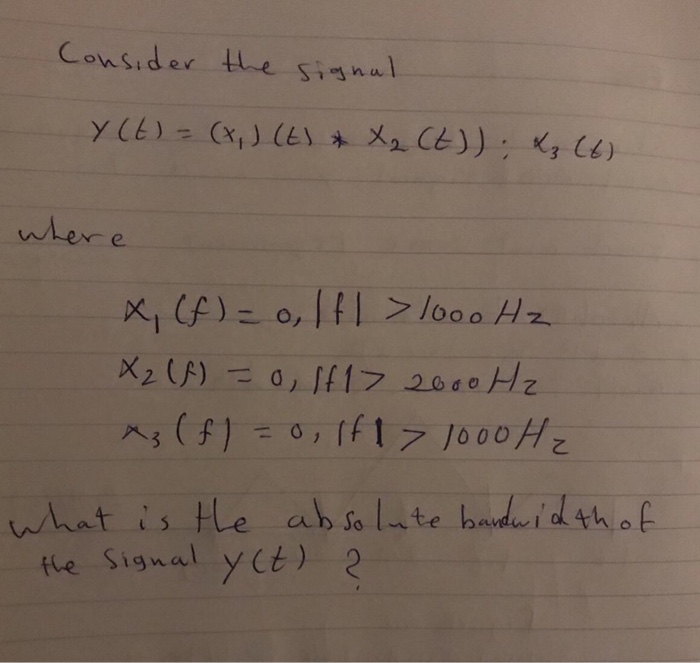 Consider the signal
y(t) = (x₁)(t) * x₂(t)); x₃(t)
where
x₁(f) = 0, |f| > 1000 Hz
x₂(f) = 0, |f| > 2000 Hz
x₃(f) = 0, |f| > 1000 Hz
what is the absolute bandwidth of
the signal y(t) ?